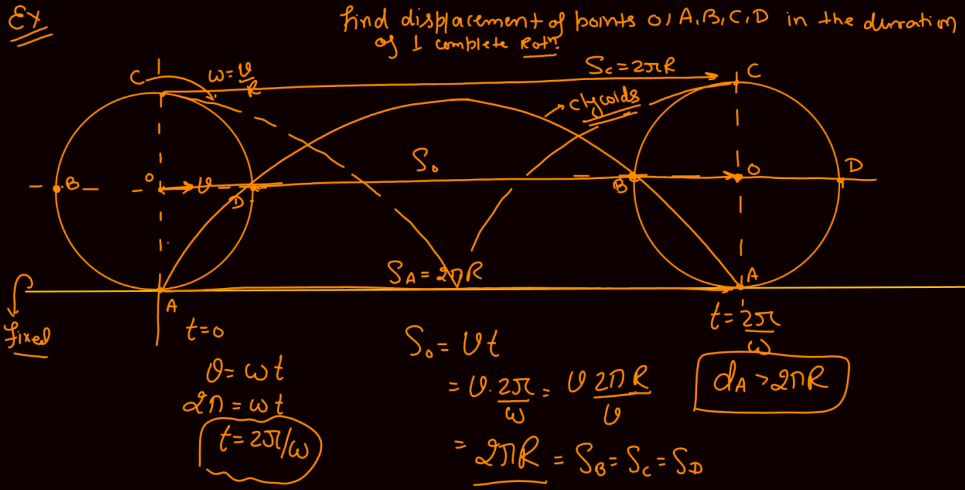 Ex
find displacement of points O, A, B, C, D in the duration
of 1 complete Rotⁿ.
C
ω = v/R
S_C = 2πR
C
cycloids
B
O
v
D
S_0
B
O
D
S_A = 2πR
A
A
fixed
t=0
t = 2π/ω
θ = ωt
2π = ωt
t = 2π/ω
S_0 = vt
= v · 2π/ω = v 2πR/v
= 2πR = S_B = S_C = S_D
d_A > 2πR